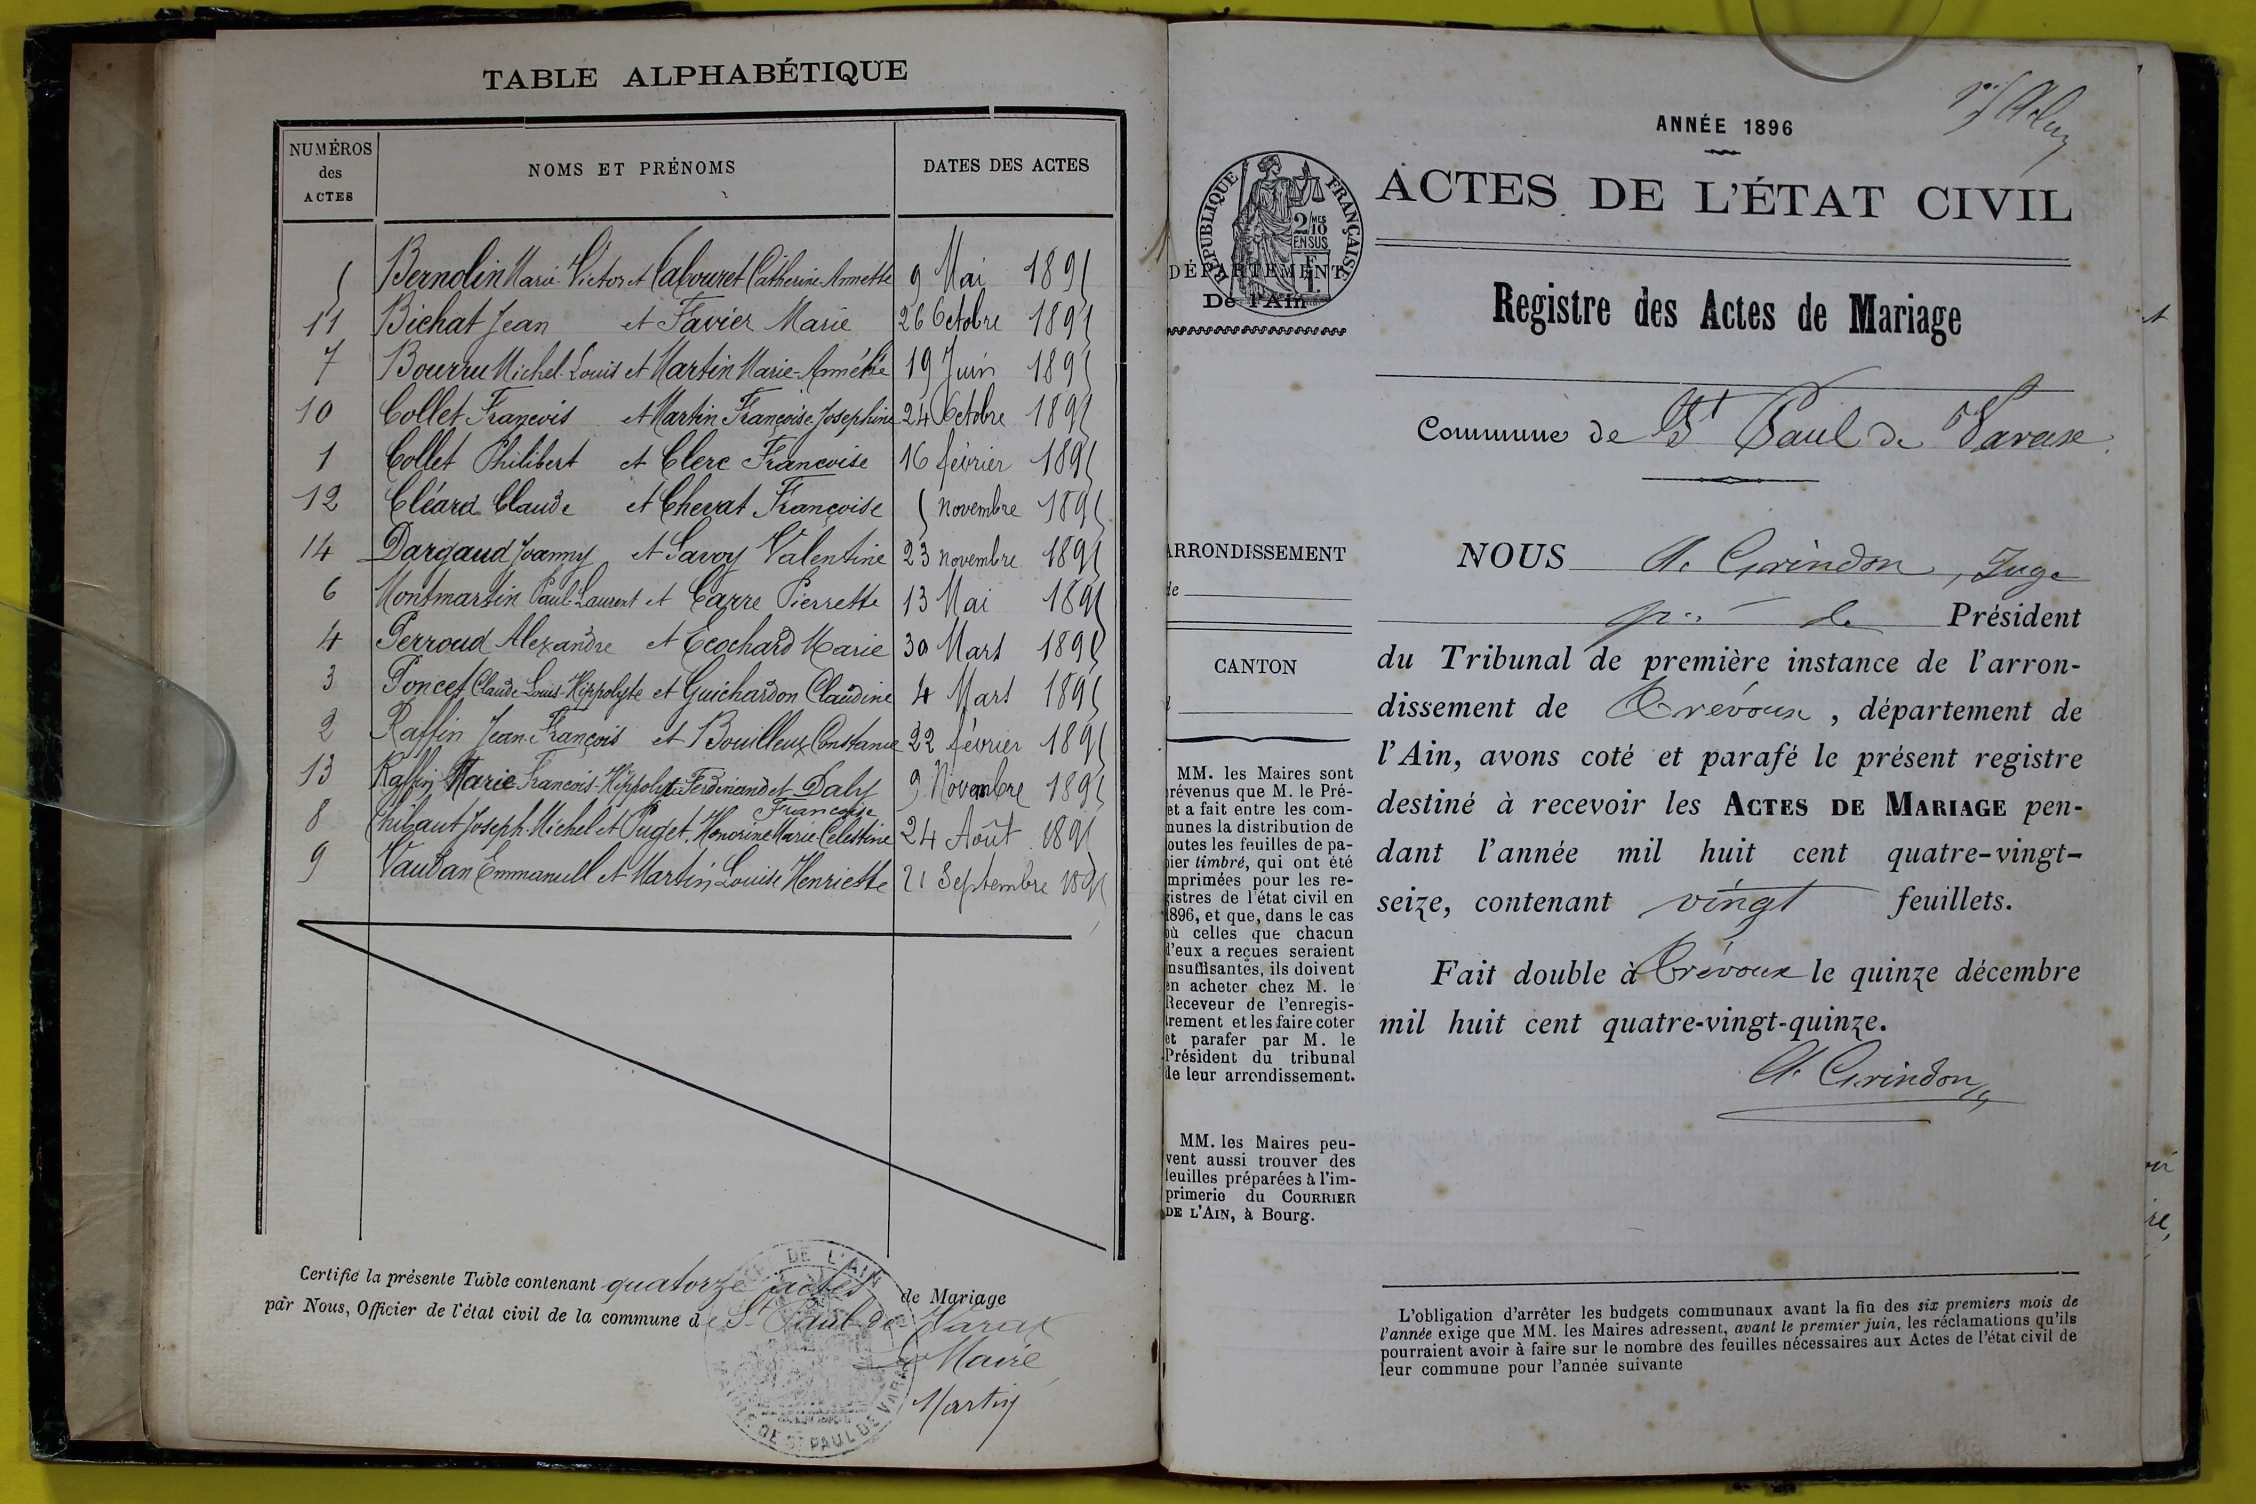 TABLE ALPHABÉTIQUE
NUMÉROS des ACTES
NOMS ET PRÉNOMS
DATES DES ACTES
5 Bernolin Marie Victor et Cabouret Catherine Annette 9 Mai 1895
11 Bichat Jean et Favier Marie 26 Octobre 1895
7 Bourru Michel-Louis et Martin Marie-Aimélie 19 Juin 1895
10 Collet François et Martin Françoise Josephine 24 Octobre 1895
1 Collet Philibert et Clerc Françoise 16 février 1895
12 Cléard Claude et Chevat Françoise 5 novembre 1895
14 Dargaud Joanny et Savoy Valentine 23 novembre 1895
6 Montmartin Paul-Laurent et Carre Pierrette 13 Mai 1895
4 Perroud Alexandre et Ecochard Marie 30 Mars 1895
3 Poncet Claude Louis Hippolyte et Guichardon Claudine 4 Mars 1895
2 Raffin Jean François et Bouilleux Constance 22 février 1895
13 Raffin Marie François-Hippolyte Ferdinand et Daly Françoise 9 Novembre 1895
8 Thibaut Joseph-Michel et Puget Honorine Marie-Celestine 24 Août 1895
9 Vaudan Emmanuell et Martin Louise Henriette 21 Septembre 1895
Certifié la présente Table contenant quatorze actes de Mariage
par Nous, Officier de l'état civil de la commune de St Paul de Varax
Le Maire
Martin
DE L'AIN
MAIRIE DE ST PAUL DE VARAX
ANNÉE 1896
ACTES DE L'ÉTAT CIVIL
RÉPUBLIQUE FRANÇAISE
2/10 MES EN SUS
DÉPARTEMENT
De l'Ain
Registre des Actes de Mariage
Commune de St Paul de Varax
ARRONDISSEMENT
de
CANTON
MM. les Maires sont
prévenus que M. le Pré-
fet a fait entre les com-
munes la distribution de
toutes les feuilles de pa-
pier timbré, qui ont été
imprimées pour les re-
gistres de l'état civil en
1896, et que, dans le cas
où celles que chacun
d'eux a reçues seraient
insuffisantes, ils doivent
en acheter chez M. le
Receveur de l'enregis-
trement et les faire coter
et parafer par M. le
Président du tribunal
de leur arrondissement.
MM. les Maires peu-
vent aussi trouver des
feuilles préparées à l'im-
primerie du COURRIER
DE L'AIN, à Bourg.
NOUS A. Grindon, Juge
Président
du Tribunal de première instance de l'arron-
dissement de Trévoux, département de
l'Ain, avons coté et parafé le présent registre
destiné à recevoir les ACTES DE MARIAGE pen-
dant l'année mil huit cent quatre-vingt-
seize, contenant vingt feuillets.
Fait double à Trévoux le quinze décembre
mil huit cent quatre-vingt-quinze.
A. Grindon
L'obligation d'arrêter les budgets communaux avant la fin des six premiers mois de
l'année exige que MM. les Maires adressent, avant le premier juin, les réclamations qu'ils
pourraient avoir à faire sur le nombre des feuilles nécessaires aux Actes de l'état civil de
leur commune pour l'année suivante